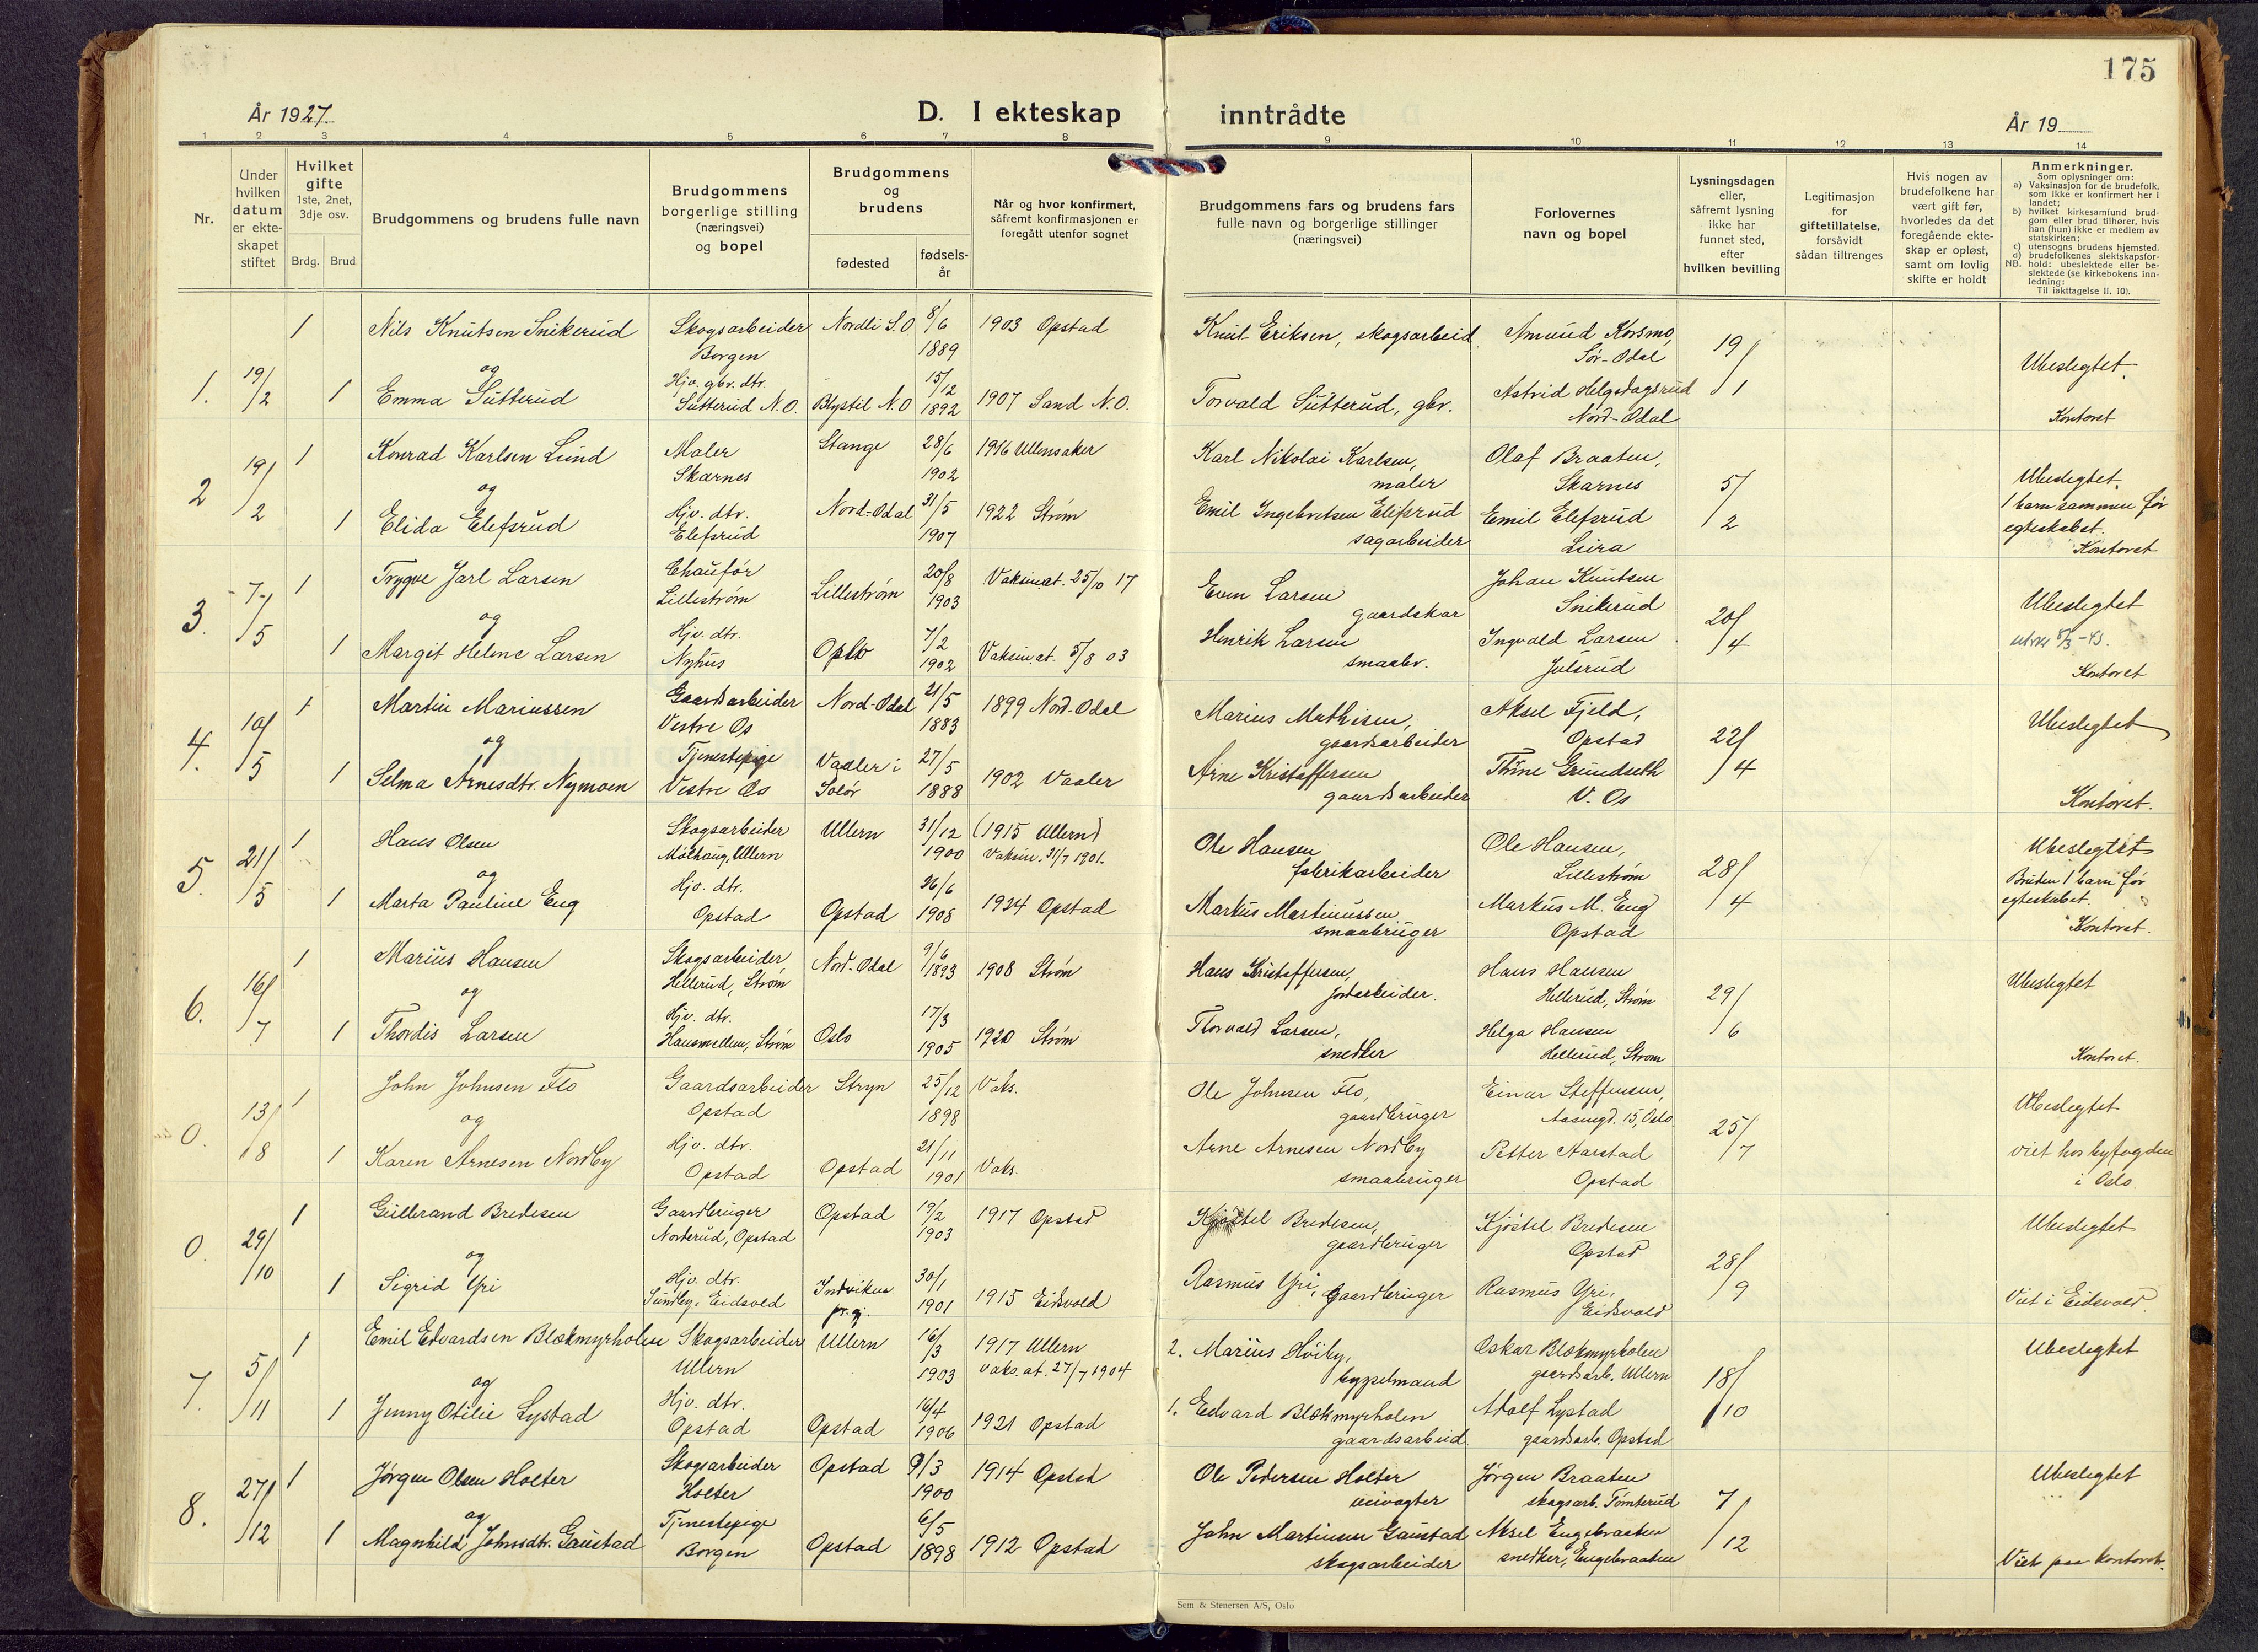 175
År 1927.
D. I ekteskap inntrådte
År 19
1 2 3 4 5 6 7 8 9 10 11 12 13 14
Nr.
Under
hvilken
datum
er ekte-
skapet
stiftet
Hvilket
gifte
1ste, 2net,
3dje osv.
Brdg. Brud
Brudgommens og brudens fulle navn
Brudgommens
borgerlige stilling
(næringsvei)
og bopel
Brudgommens
og
brudens
fødested
fødsels-
år
Når og hvor konfirmert,
såfremt konfirmasjonen er
foregått utenfor sognet
Brudgommens fars og brudens fars
fulle navn og borgerlige stillinger
(næringsvei)
Forlovernes
navn og bopel
Lysningsdagen
eller,
såfremt lysning
ikke har
funnet sted,
efter
hvilken bevilling
Legitimasjon
for
giftetillatelse,
forsåvidt
sådan tiltrenges
Hvis nogen av
brudefolkene har
vært gift før,
hvorledes da det
foregående ekte-
skap er opløst,
samt om lovlig
skifte er holdt
Anmerkninger.
Som oplysninger om:
a) Vaksinasjon for de brudefolk,
som ikke er konfirmert her i
landet;
b) hvilket kirkesamfund brud-
gom eller brud tilhører, hvis
han (hun) ikke er medlem av
statskirken;
c) utensogns brudens hjemsted.
d) brudefolkenes slektskapsfor-
hold: ubeslektede eller be-
slektede (se kirkebokens inn-
ledning:
NB.
Til iakttagelse II. 10).
1 Nils Knutsen Snikerud Skogsarbeider Nordli S.O 8/6 1903 Opstad Knut Eriksen, skogsarbeid. Amund Korsmo,
Borgen 1889 Sør-Odal
1. 19/2 og Hjv. gbr. dtr. 15/12 19/1 Ubeslegtet.
1 Emma Sutterud Sutterud N.O. Blystil N.O 1892 1907 Sand N.O. Torvald Sutterud, gbr. Astrid Helgedagsrud
Nord-Odal Kontoret
1 Konrad Karlsen Lund Maler Stange 28/6 1916 Ullensaker Karl Nikolai Karlsen, Olaf Braaten,
Skarnes 1902 maler Skarnes
2 19/2 og 5/2 Ubeslegtet.
1 Elida Elefsrud Hjv. dtr. Nord-Odal 31/5 1922 Strøm Emil Ingebretsen Elefsrud Emil Elefsrud 1 barn sammen før
Elefsrud 1907 sagarbeider Leira egteskabet.
Kontoret
1 Trygve Jarl Larsen Chaufør Lillestrøm 20/8 Vaksin.at. 25/10 17 Even Larsen Johan Knutsen
Lillestrøm 1903 gaardskar Snikerud
3. 7/5 og 20/4 Ubeslegtet
1 Margit Helene Larsen Hjv. dtr. Oslo 7/2 Vaksin.at. 5/8 03 Henrik Larsen Ingvald Larsen
Nyhus 1902 smaabr. Julsrud Kontoret
1 Martin Mariussen Gaardsarbeider Nord-Odal 21/5 1899 Nord-Odal Marius Mathisen, Aksel Fjeld,
Vestre Os 1883 gaardsarbeider Opstad
4. 10/5 og 22/4 Ubeslegtet
1 Selma Arnesdtr. Nymoen Tjenestepige Vaaler i 27/5 1902 Vaaler Arne Kristoffersen Thine Grundseth
Vestre Os Solør 1888 gaardsarbeider V. Os Kontoret.
1 Hans Olsen Skogsarbeider Ullern 31/12 (1915 Ullern) Ole Hansen Ole Hansen,
Molhaug, Ullern 1900 Vaksin. 31/7 1901. fabrikarbeider Lillestrøm
5. 21/5 og 28/4 Ubeslegtet
1 Marta Pauline Eng Hjv. dtr. Opstad 26/6 1924 Opstad Markus Martinussen Markus M. Eng Bruden 1 barn før
Opstad 1908 smaabruger Opstad egteskabet.
Kontoret.
1 Marius Hansen Skogsarbeider Nord-Odal 9/6 1908 Strøm Hans Kristoffersen, Hans Hansen
Hellerud, Strøm 1893 jordarbeider. Hellerud, Strøm
6. 16/7 og 29/6 Ubeslegtet
1 Thordis Larsen Hjv. dtr. Oslo 17/3 1920 Strøm Thorvald Larsen, Helga Hansen
Strøm 1905 snedker Hellerud, Strøm Kontoret.
1 John Johnsen Flo Gaardsarbeider Stryn 25/12 Vaks. Ole Johnsen Flo, Einar Steffensen,
Opstad 1898 gaardbruger 15, Oslo
0. 13/8 og 25/7 Ubeslegtet
1 Karen Arnesen Nordby Hjv. dtr. Opstad 21/11 Vaks. Arne Arnesen Nordby Petter Aarstad viet hos byfogden
Opstad 1901 smaabruger Opstad i Oslo.
1 Gullerand Bredesen Gaardbruger Opstad 19/2 1917 Opstad Kjøstel Bredesen, Kjøstel Bredesen
Norderud, Opstad 1903 gaardbruger Opstad
0. 29/10 og 28/9 Ubeslegtet
1 Sigrid Yri Hjv. dtr. Indviken 30/1 1915 Eidsvold Rasmus Yri, Gaardbruger Rasmus Yri,
Sundby, Eidsvold pr.gj. 1901 Eidsvold Viet i Eidsvold.
1 Emil Edvardsen Blekmyrholen Skogsarbeider Ullern 16/3 1917 Ullern 2. Marius Høiby, Oskar Blekmyrholen
Ullern 1903 Vaks.at. 27/7 1904 bygselmand gaardsarb. Ullern
7. 5/11 og 18/10 Ubeslegtet
1 Jenny Otilie Lystad Hjv. dtr. Opstad 16/4 1921 Opstad 1. Edvard Blekmyrholen Adolf Lystad
Opstad 1906 gaardsarbeid gaardsarb. Opstad
1 Jørgen Olsen Holter Skogsarbeider Opstad 9/3 1914 Opstad Ole Pedersen Holter Jørgen Braaten
Holter 1900 veivogter skogsarb. Tomterud
8. 27/12 og 7/12 Ubeslegtet
1 Magnhild Johnsdtr. Gaustad Tjenestepige Opstad 6/5 1912 Opstad John Martinsen Gaustad Aksel Engebraaten
Borgen 1898 skogsarbeider snedker, Engebraaten Viet paa kontoret.
Sem & Stenersen A/S, Oslo